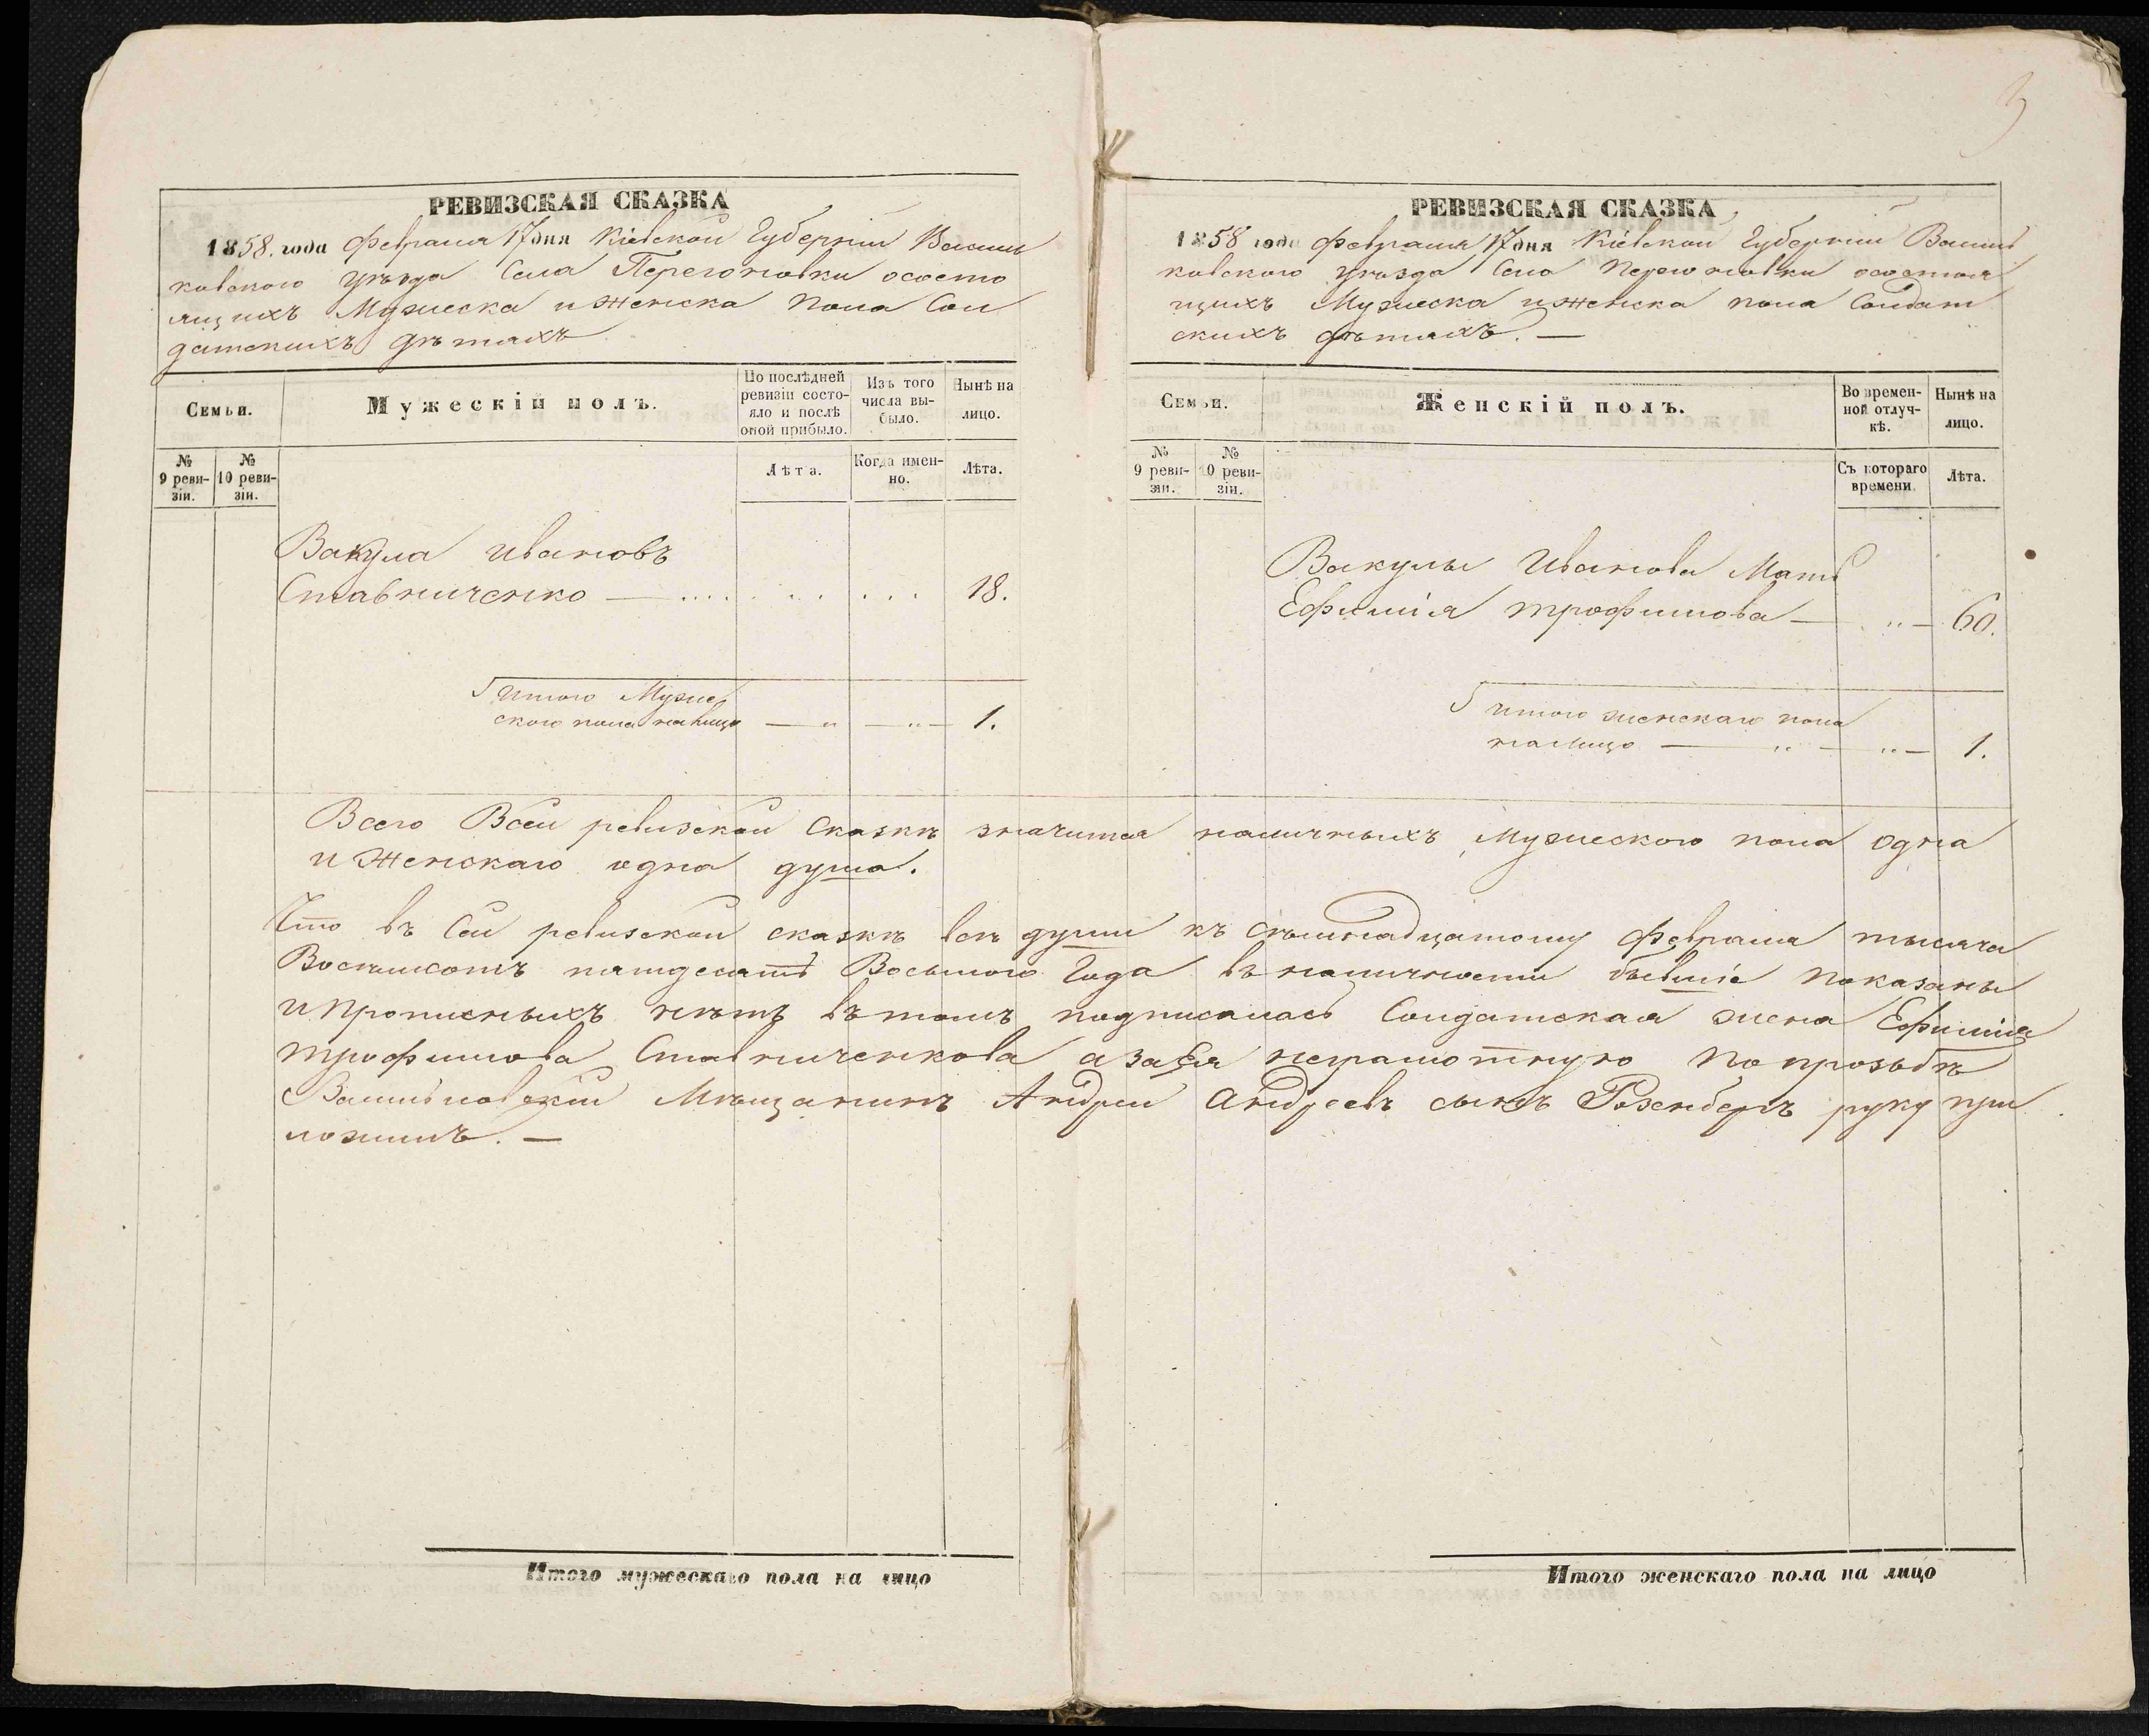 3
РЕВИЗСКАЯ СКАЗКА
1858. года Февраля 17 дня Кіевской Губерніи Василь
ковского уѣзда Села Перегоновки ососто
ящихъ Мужеска и женска пола Сол
датскихъ дѣтяхъ
Семьи.
Мужескій полъ.
По послѣдней
ревизіи состо-
яло и послѣ
оной прибыло.
Изъ того
числа вы-
было.
Нынѣ на
лицо.
№
9 реви-
зіи.
№
10 реви-
зіи.
Лѣта.
Когда имен-
но.
Лѣта.
Вакула Ивановъ
Ставниченко — 18.
Итого Муже
ского пола налицо — „ — „ — 1.
РЕВИЗСКАЯ СКАЗКА
1858 года Февраля 17 дня Кіевской Губерніи Василь
ковского уѣзда Села Перегоновки осостоя
щихъ Мужеска и женска пола Солдат
скихъ дѣтяхъ. —
Семьи.
Женскій полъ.
Во времен-
ной отлуч-
кѣ.
Нынѣ на
лицо.
№
9 реви-
зіи.
№
10 реви-
зіи.
Съ котораго
времени.
Лѣта.
Вакулы Иванова Мать
Ефимія трофимова — „ — 60.
Итого женскаго пола
налицо — „ — „ — 1.
Всего Всей ревизской сказкѣ значится наличныхъ Мужеского пола одна
и Женскаго одна душа.
Что въ Сей ревизской сказкѣ всѣ души къ Сѣмнадцатому Февраля тысяча
Восѣмсотъ пятдесятъ Восьмого Года въ наличности бывшіе показаны
и прописныхъ нѣтъ въ томъ подписалась Солдатская жена Ефимія
трофимова Ставниченкова а за Ея неграмотную По прозьбѣ
Васильковскій Мѣщанинъ Андрей Андреевъ сынъ Розенбергъ руку при
ложилъ. —
Итого мужескаго пола на лицо
Итого женскаго пола на лицо